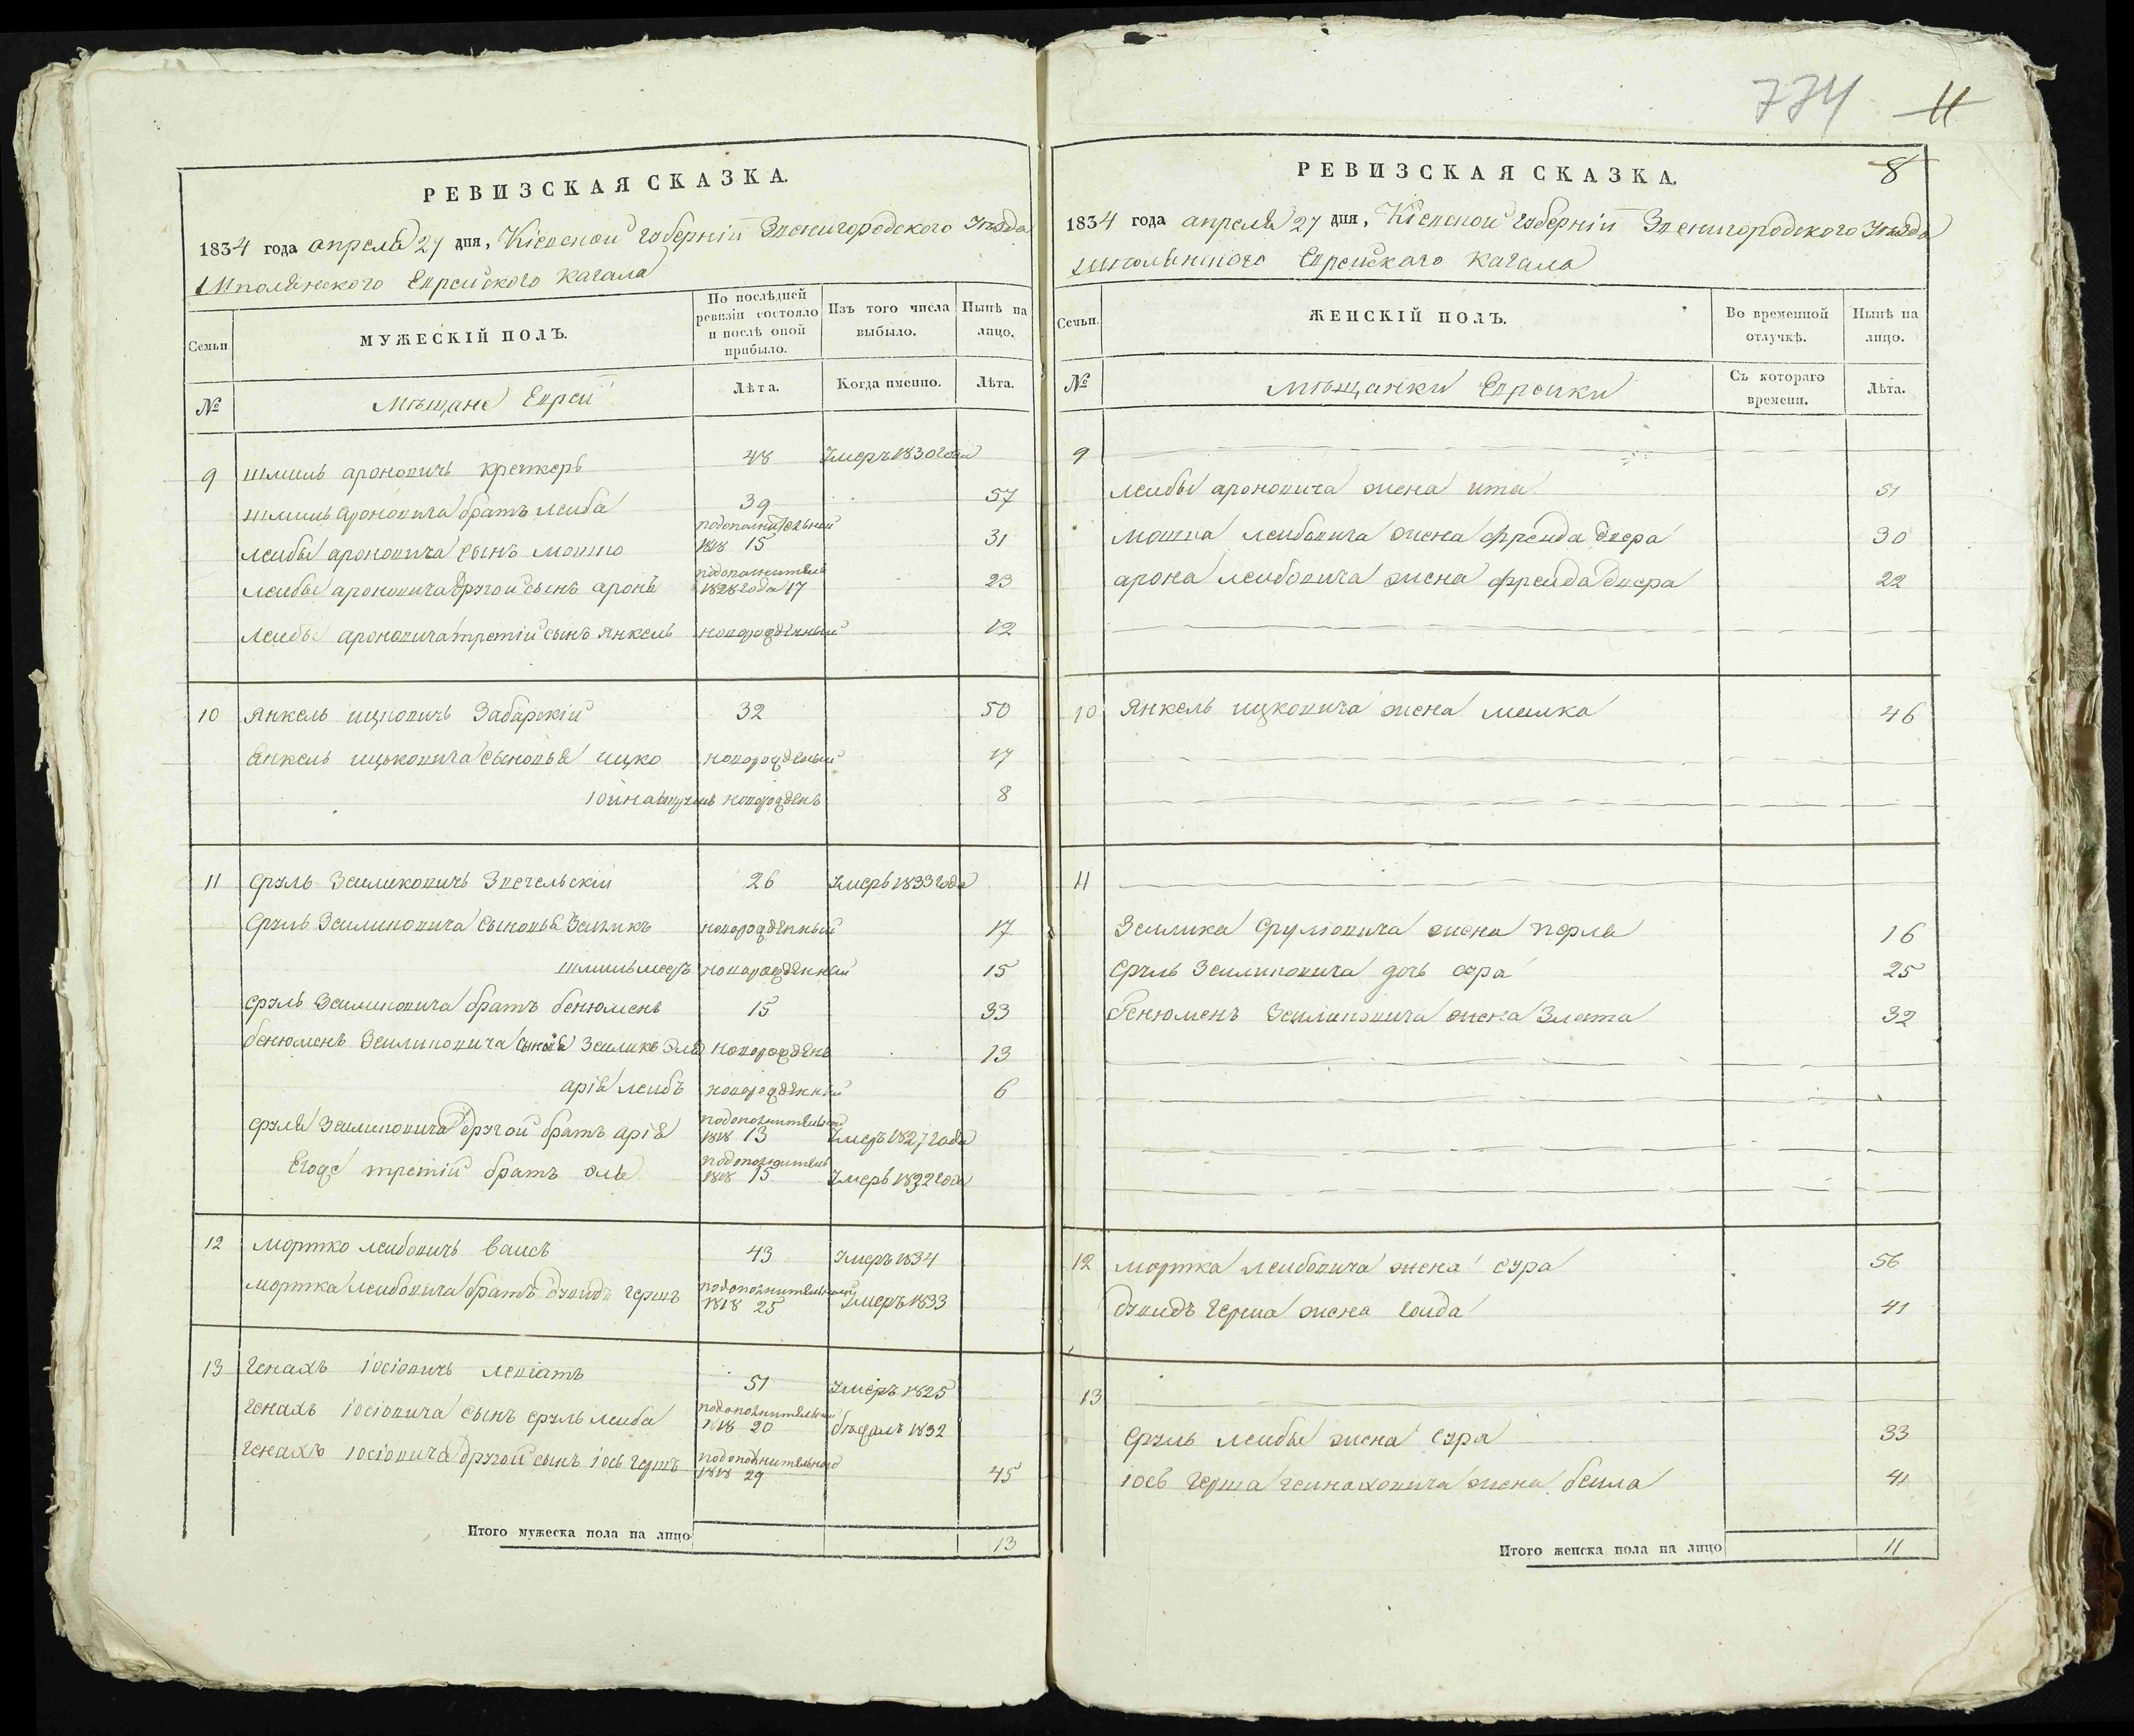 РЕВИЗСКАЯ СКАЗКА.
1834 года апреля 27 дня, Кіевской губерніи Звенигородского уѣзда
Шполянского Еврейского кагала
Семьи
МУЖЕСКІЙ ПОЛЪ.
По послѣдней ревизіи состояло и послѣ оной прибыло.
Изъ того числа выбыло.
Нынѣ на лицо.
№
Мѣщане Евреи
Лѣта.
Когда именно.
Лѣта.
9 Шмиль Ароновичъ 48 Умеръ 1830 года
Шмиль Ароновича братъ Лейба 39 57
Лейбы Ароновича сынъ Мошко подополнительной 1818 15 31
Лейбы Ароновича другой сынъ Аронъ подополнитель 1828 года 17 23
Лейбы Ароновича третій сынъ Янкель новорожденный 12
10 Янкель Ицковичъ Забарскій 32 50
Янкель Ицьковича сыновья Ицко новорожденый 17
новорожденъ 8
11 Сруль Зейликовичъ Звегельскій 26 Умеръ 1833 года
Сруль Зейликовича сыновья Зейликъ новорожденный 17
Шмильмееръ новорожденный 15
Сруль Зейликовича братъ Бенюменъ 15 33
Бенюменъ Зейликовича сыновья Зейликъ Эля новорожденъ 13
Арія Лейбъ новорожденный 6
Сруля Зейликовича другой братъ Арія подополнительной 1818 13 Умеръ 1827 года
Егоже третій братъ Эля подополнитель 1818 15 Умеръ 1832 года
12 Мортко Лейбовичъ Вайсъ 43 Умеръ 1834
Мортка Лейбовича братъ Дувидъ Гершъ подополнительной 1818 25 Умеръ 1833
13 Генахъ Іосіовичъ Левіатъ 51 Умеръ 1825
Генахъ Іосіовича сынъ Сруль Лейба подополнительной 1818 20 бѣжалъ 1832
Генахъ Іосіовича другой сынъ Іось Гершъ подополнительной 1818 29 45
Итого мужеска пола на лицо 13
774 11
РЕВИЗСКАЯ СКАЗКА. 8
1834 года апреля 27 дня, Кіевской губерніи Звенигородского уѣзда
Шполянского Еврейскаго кагала
Семьи.
ЖЕНСКІЙ ПОЛЪ.
Во временной отлучкѣ.
Нынѣ на лицо.
№
Мѣщанки Еврейки
Съ котораго времени.
Лѣта.
9
Лейбы Ароновича жена Ита 51
Мошка Лейбовича жена Фрейда Двера 30
Арона Лейбовича жена Фрейда Двера 22
10 Янкель Ицковича жена Малка 46
11
Зейлика Срулювича жена Перля 16
Сруль Зейликовича дочь Сура 25
Бенюменъ Зейликовича жена Злата 32
12 Мортка Лейбовича жена Сура 56
Дувидъ Герша жена Гольда 41
13
Сруль Лейбы жена Сура 33
Іось Герша Гейнаховича жена Бейла 41
Итого женска пола на лицо 11